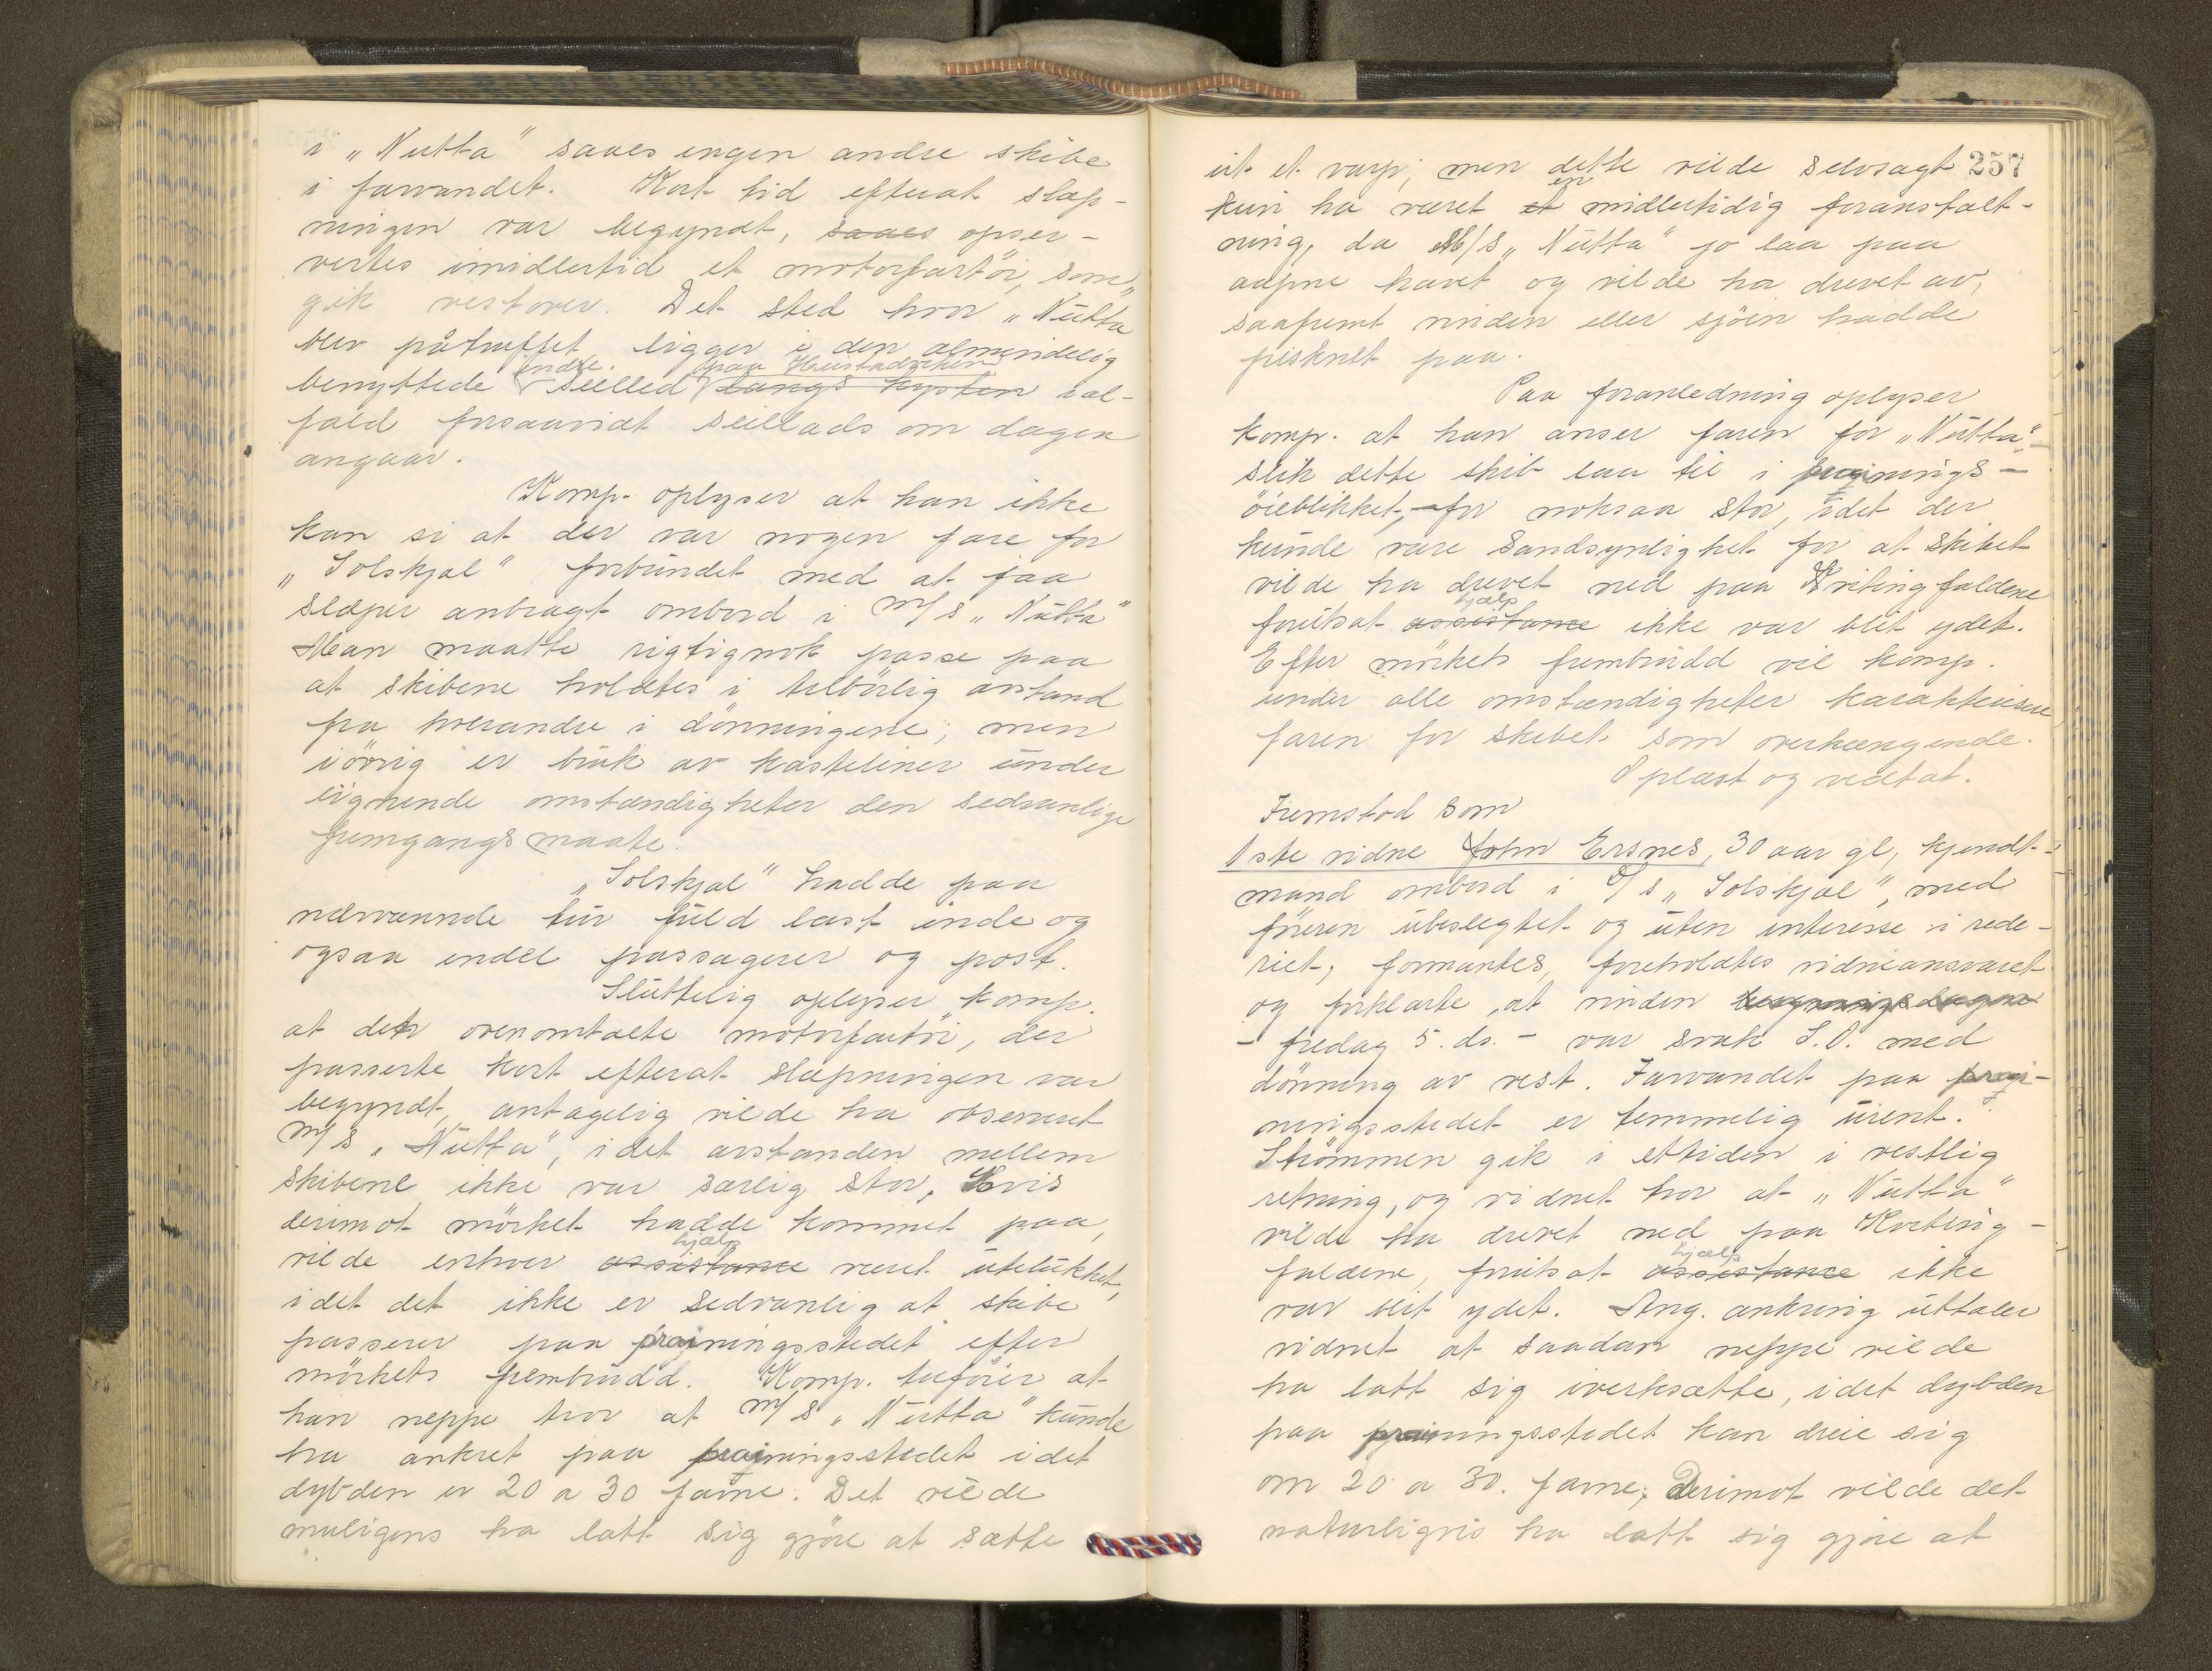 i „Nutta" saaes ingen andre skibe
i farvandet. Kort tid efterat slæp-
ningen var begyndt, saaes opser-
vertes imidlertid et motorfartöi, som
gik vestover. Det sted hvor „Nutta"
blev påtruffet ligger i den almindelig
indre paa Hustadviken
benyttede Seilled langs kysten ial-
fald forsaavidt seillads om dagen
angaar.
Komp. oplyser at han ikke
kan si at der var nogen fare for
„Solskjel" forbundet med at faa
slæper anbragt ombord i M/S „Nutta"
Man maatte rigtignok passe paa
at skibene holdtes i tilbörlig avstand
fra hverandre i dönningene; men
iövrig er bruk av kasteliner under
lignende omstændigheter den sedvanlige
fremgangsmaate.
„Solskjel" hadde paa
nærværende tur fuld last inde og
ogsaa endel passagerer og post.
Sluttelig oplyser komp.
at det ovenomtalte motorfartöi, der
passerte kort efterat slæpningen var
begyndt, antagelig vilde ha observert
M/S „Nutta", idet avstanden mellem
skibene ikke var særlig stor. Hvis
derimot mörket hadde kommet paa,
hjælp
vilde enhver assistance været utelukket,
idet det ikke er sedvanlig at skibe
passerer paa prainingsstedet efter
mörkets frembrudd. Komp. tilföier at
han neppe tror at M/S „Nutta" kunde
ha ankret paa prainingsstedet idet
dybden er 20 a 30 favne. Det vilde
muligens ha latt sig gjöre at sætte
257
ut et varp; men dette vilde selvsagt
en
kun ha været et midlertidig foranstalt-
ning, da M/S „Nutta" jo laa paa
aapne havet og vilde ha drevet av,
saafremt vinden eller sjöen hadde
frisknet paa.
Paa foranledning oplyser
komp. at han anser faren for „Nutta"
slik dette skib laa til i prainings-
öieblikket, for noksaa stor, idet der
kunde være sandsynlighet for at skibet
vilde ha drevet ned paa Kvitingfaldene
hjælp
forutsat assistance ikke var blit ydet.
Efter mörkets frembrudd vil komp.
under alle omstændigheter karakterisere
faren for skibet som overhængende.
Oplæst og vedtat.
Fremstod som
1ste vidne John Ersnes, 30 aar gl, kjendt-
mand ombord i D/S „Solskjel", med
föreren ubeslegtet og uten interesse i rede-
riet, formantes, foreholdtes vidneansvaret
og forklarte, at vinden
- fredag 5. ds. - var svak S.O. med
dönning av vest. Farvandet paa prai-
ningsstedet er temmelig urent.
Strömmen gik i ettiden i vestlig
retning, og vidnet tror at „Nutta"
vilde ha drevet ned paa Kviting-
hjælp
faldene, forutsat assistance ikke
var blit ydet. Ang. ankring uttaler
vidnet at saadan neppe vilde
ha latt sig iverksætte, idet dybden
paa prainingsstedet kan dreie sig
om 20 a 30. favne; Derimot vilde det
naturligvis ha latt sig gjöre at